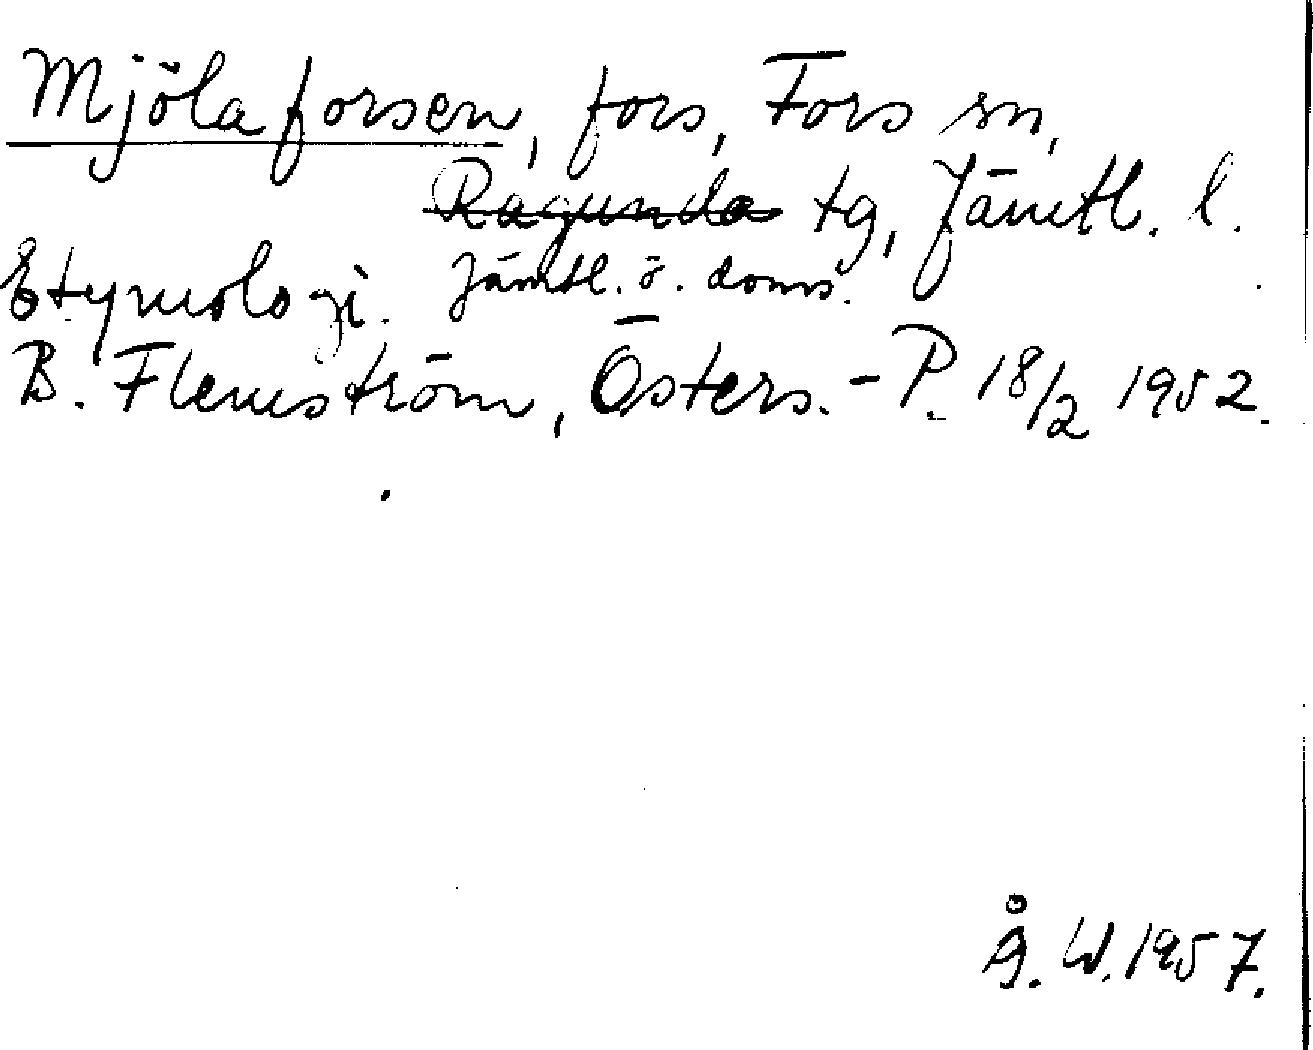 Mjölaforsen, fors, Fors sn,
Ragunda tg, Jämtl. l.
Etymologi. Jämtl. ö. doms.
B. Flemström, Östers.-P. 18/2 1952.
Å. W. 1957.